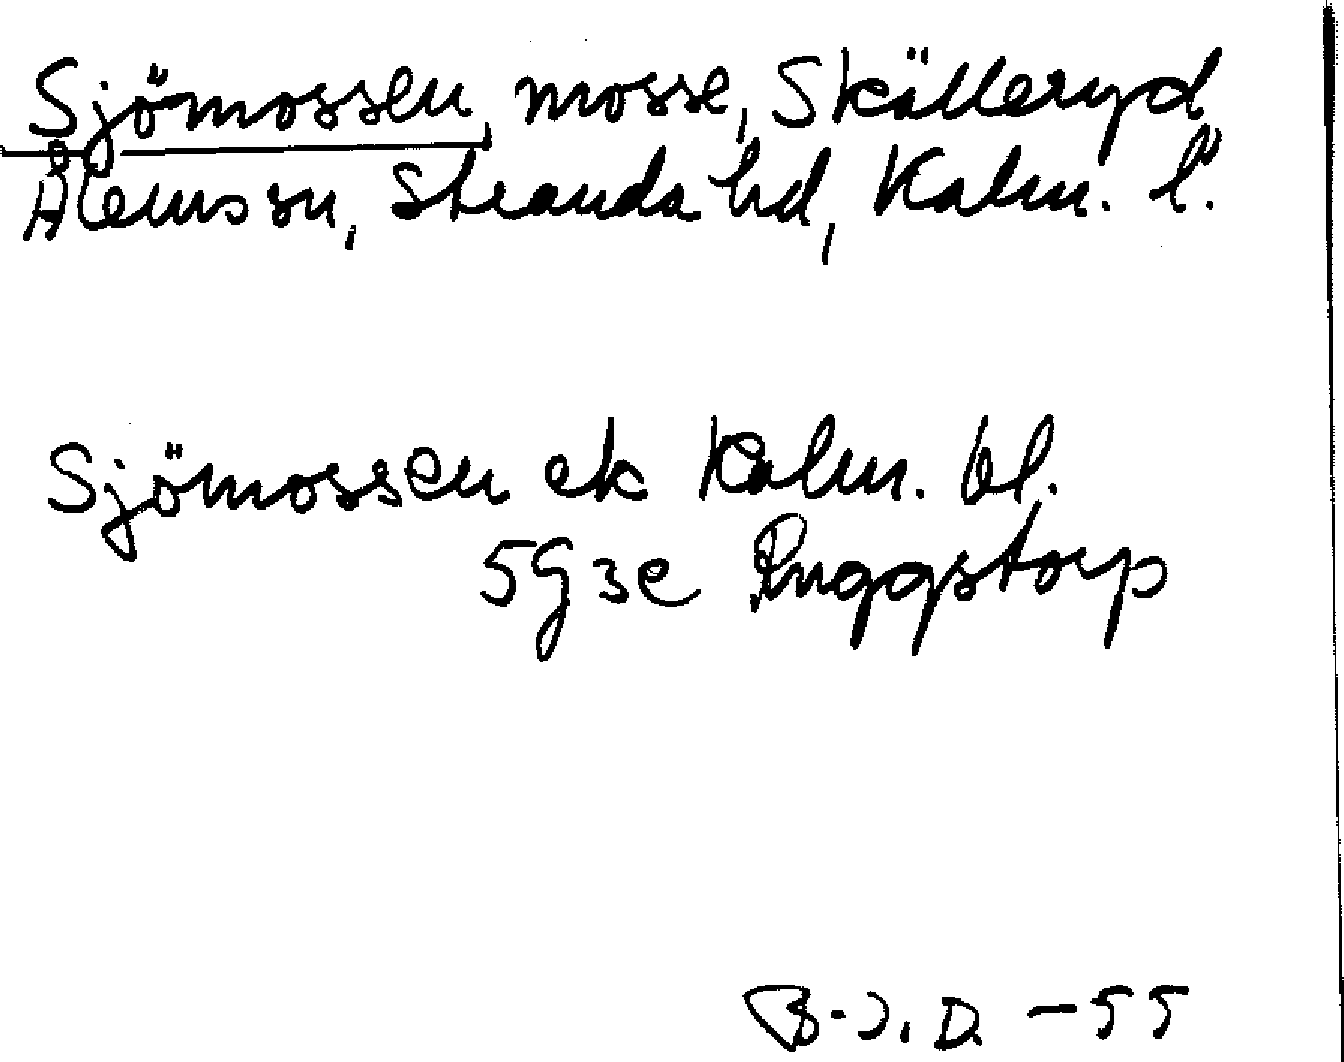 Sjömossen, mosse, Skälleryd,
Ålems sn, Stranda hd, Kalm. l.
Sjömossen ek Kalm. bl.
5G3e Ruggstorp
B-J. D. -55